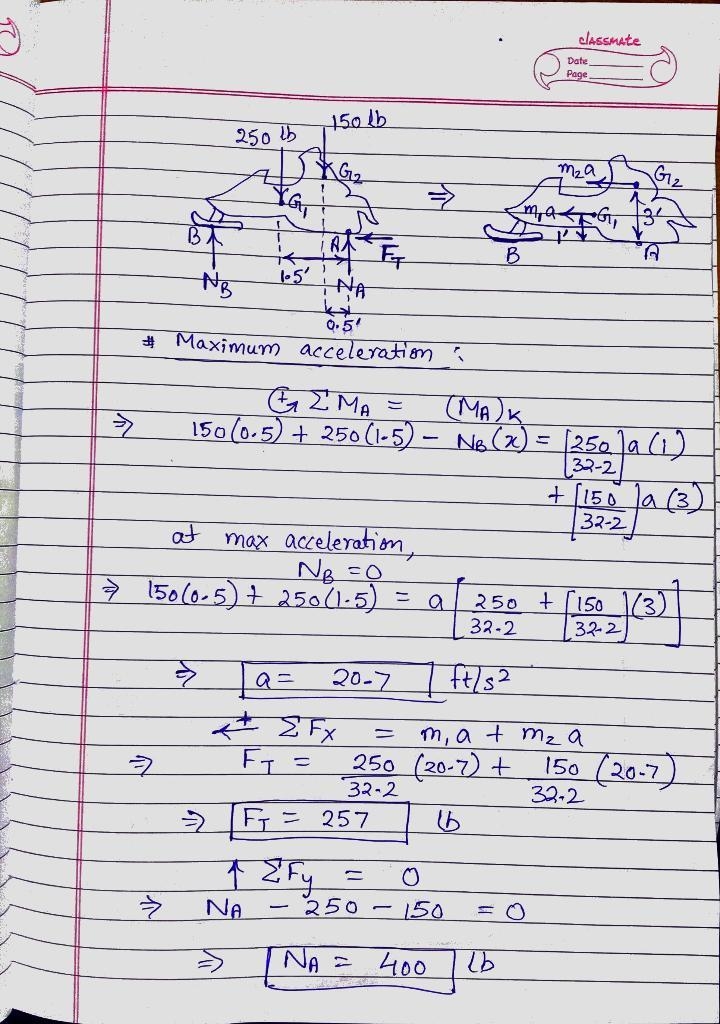 classmate
Date
Page
250 lb
150 lb
G₂
G₁
B
A
F_T
N_B
1.5'
N_A
0.5'
⇒
m₂a
G₂
m₁a
G₁
3'
1'
B
A
# Maximum acceleration :
↺+ ΣM_A = (M_A)_K
⇒ 150(0.5) + 250(1.5) − N_B(x) = [250/32.2] a (1)
+ [150/32.2] a (3)
at max acceleration,
N_B = 0
⇒ 150(0.5) + 250(1.5) = a [250/32.2 + [150/32.2](3)]
⇒ a = 20.7 ft/s²
←+ ΣF_x = m₁a + m₂a
⇒ F_T = 250/32.2 (20.7) + 150/32.2 (20.7)
⇒ F_T = 257 lb
↑ ΣF_y = 0
⇒ N_A − 250 − 150 = 0
⇒ N_A = 400 lb